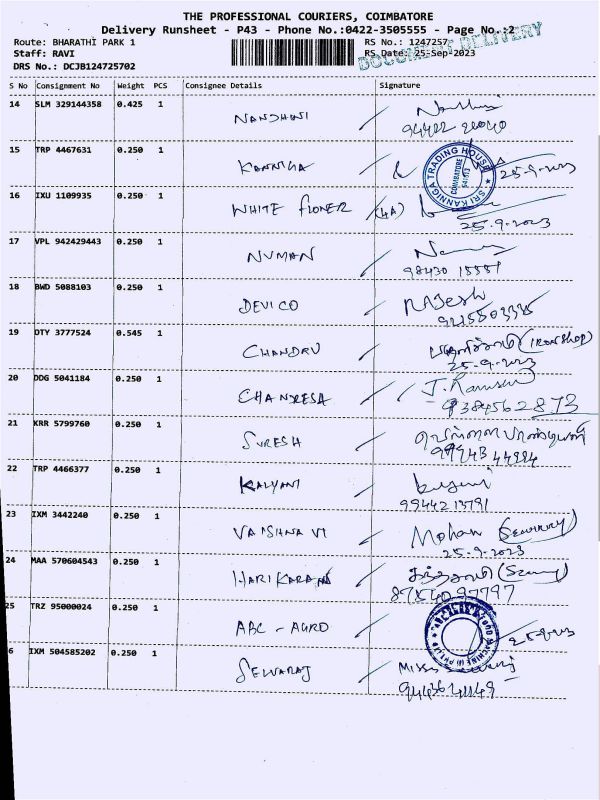 THE PROFESSIONAL COURIERS, COIMBATORE
Delivery Runsheet - P43 - Phone No.:0422-3505555 - Page No.:2
DOCUMENT DELIVERY
Route: BHARATHI PARK 1 RS No.: 1247257
Staff: RAVI RS Date: 25-Sep-2023
DRS No.: DCJB124725702
S No Consignment No Weight PCS Consignee Details Signature
14 SLM 329144358 0.425 1 NANDHINI
15 TRP 4467631 0.250 1 KANNIGA 25-9-2023
SRI KANNIGA TRADING HOUSE COIMBATORE
16 IXU 1109935 0.250 1 WHITE FLOWER
25-9-2023
17 VPL 942429443 0.250 1 NUMAN
98430 15551
18 BWD 5088103 0.250 1 DEVICO Rajesh
19 DTY 3777524 0.545 1 CHANDRU (Iron shop)
25-9-2023
20 DDG 5041184 0.250 1 CHANDRESA
9384562873
21 KRR 5799760 0.250 1 SURESH
9994344984
22 TRP 4466377 0.250 1 KALYANI
9944213791
23 IXM 3442240 0.250 1 VAISHNAVI Mohan (Security)
25-9-2023
24 MAA 570604543 0.250 1 HARIKARAN
8754097797
25 TRZ 95000024 0.250 1 ABC - AGRO
6 IXM 504585202 0.250 1 SELVARAJ